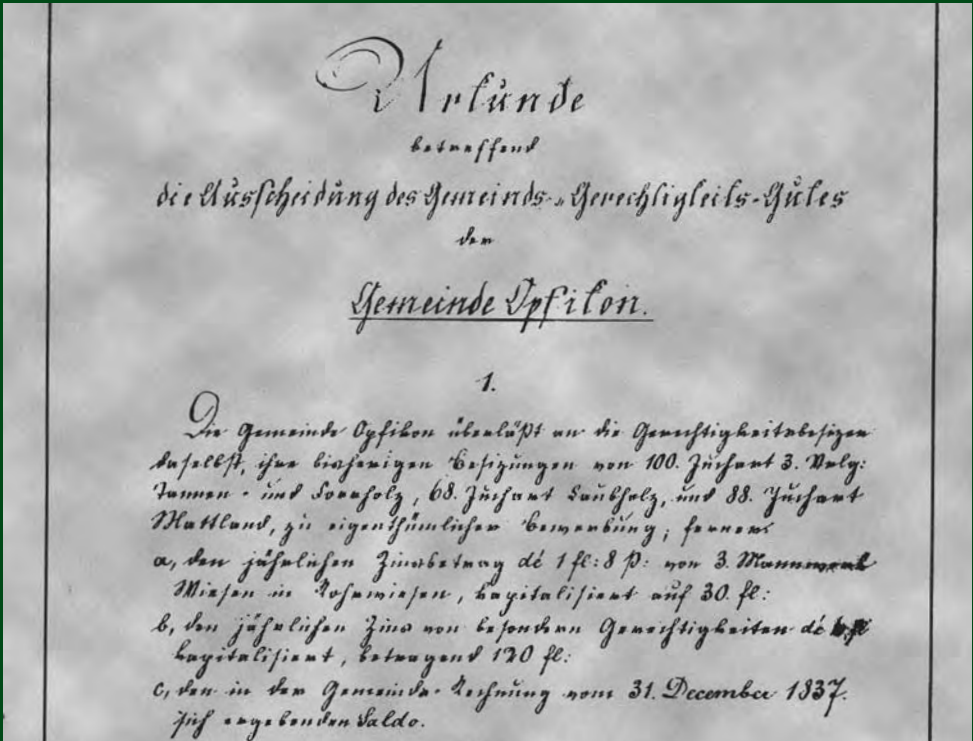 Urkunde
betreffend
die Ausscheidung des Gemeinds- Gerechtigkeits-Gutes
der
Gemeinde Opfikon.
1.
Die Gemeinde Opfikon überläßt an die Gerechtigkeitsbesizer
daselbst, ihre bisherigen Besizungen von 100. Juchart 3. Vrlg:
Tannen- und Forrholz, 68. Juchart Laubholz, und 88. Juchart
Mattland, zu eigenthümlicher Bewerbung; ferners
a, den jährlichen Zinsbetrag dé 1 fl: 8 ß: von 3. Mannwerk
Wiesen in Rohrwiesen, kapitalisiert auf 30. fl:
b, den jährlichen Zins von besondern Gerechtigkeiten dé
kapitalisiert, betragend 120 fl:
c, den in der Gemeinds-Rechnung vom 31. December 1837.
sich ergebenden Saldo.